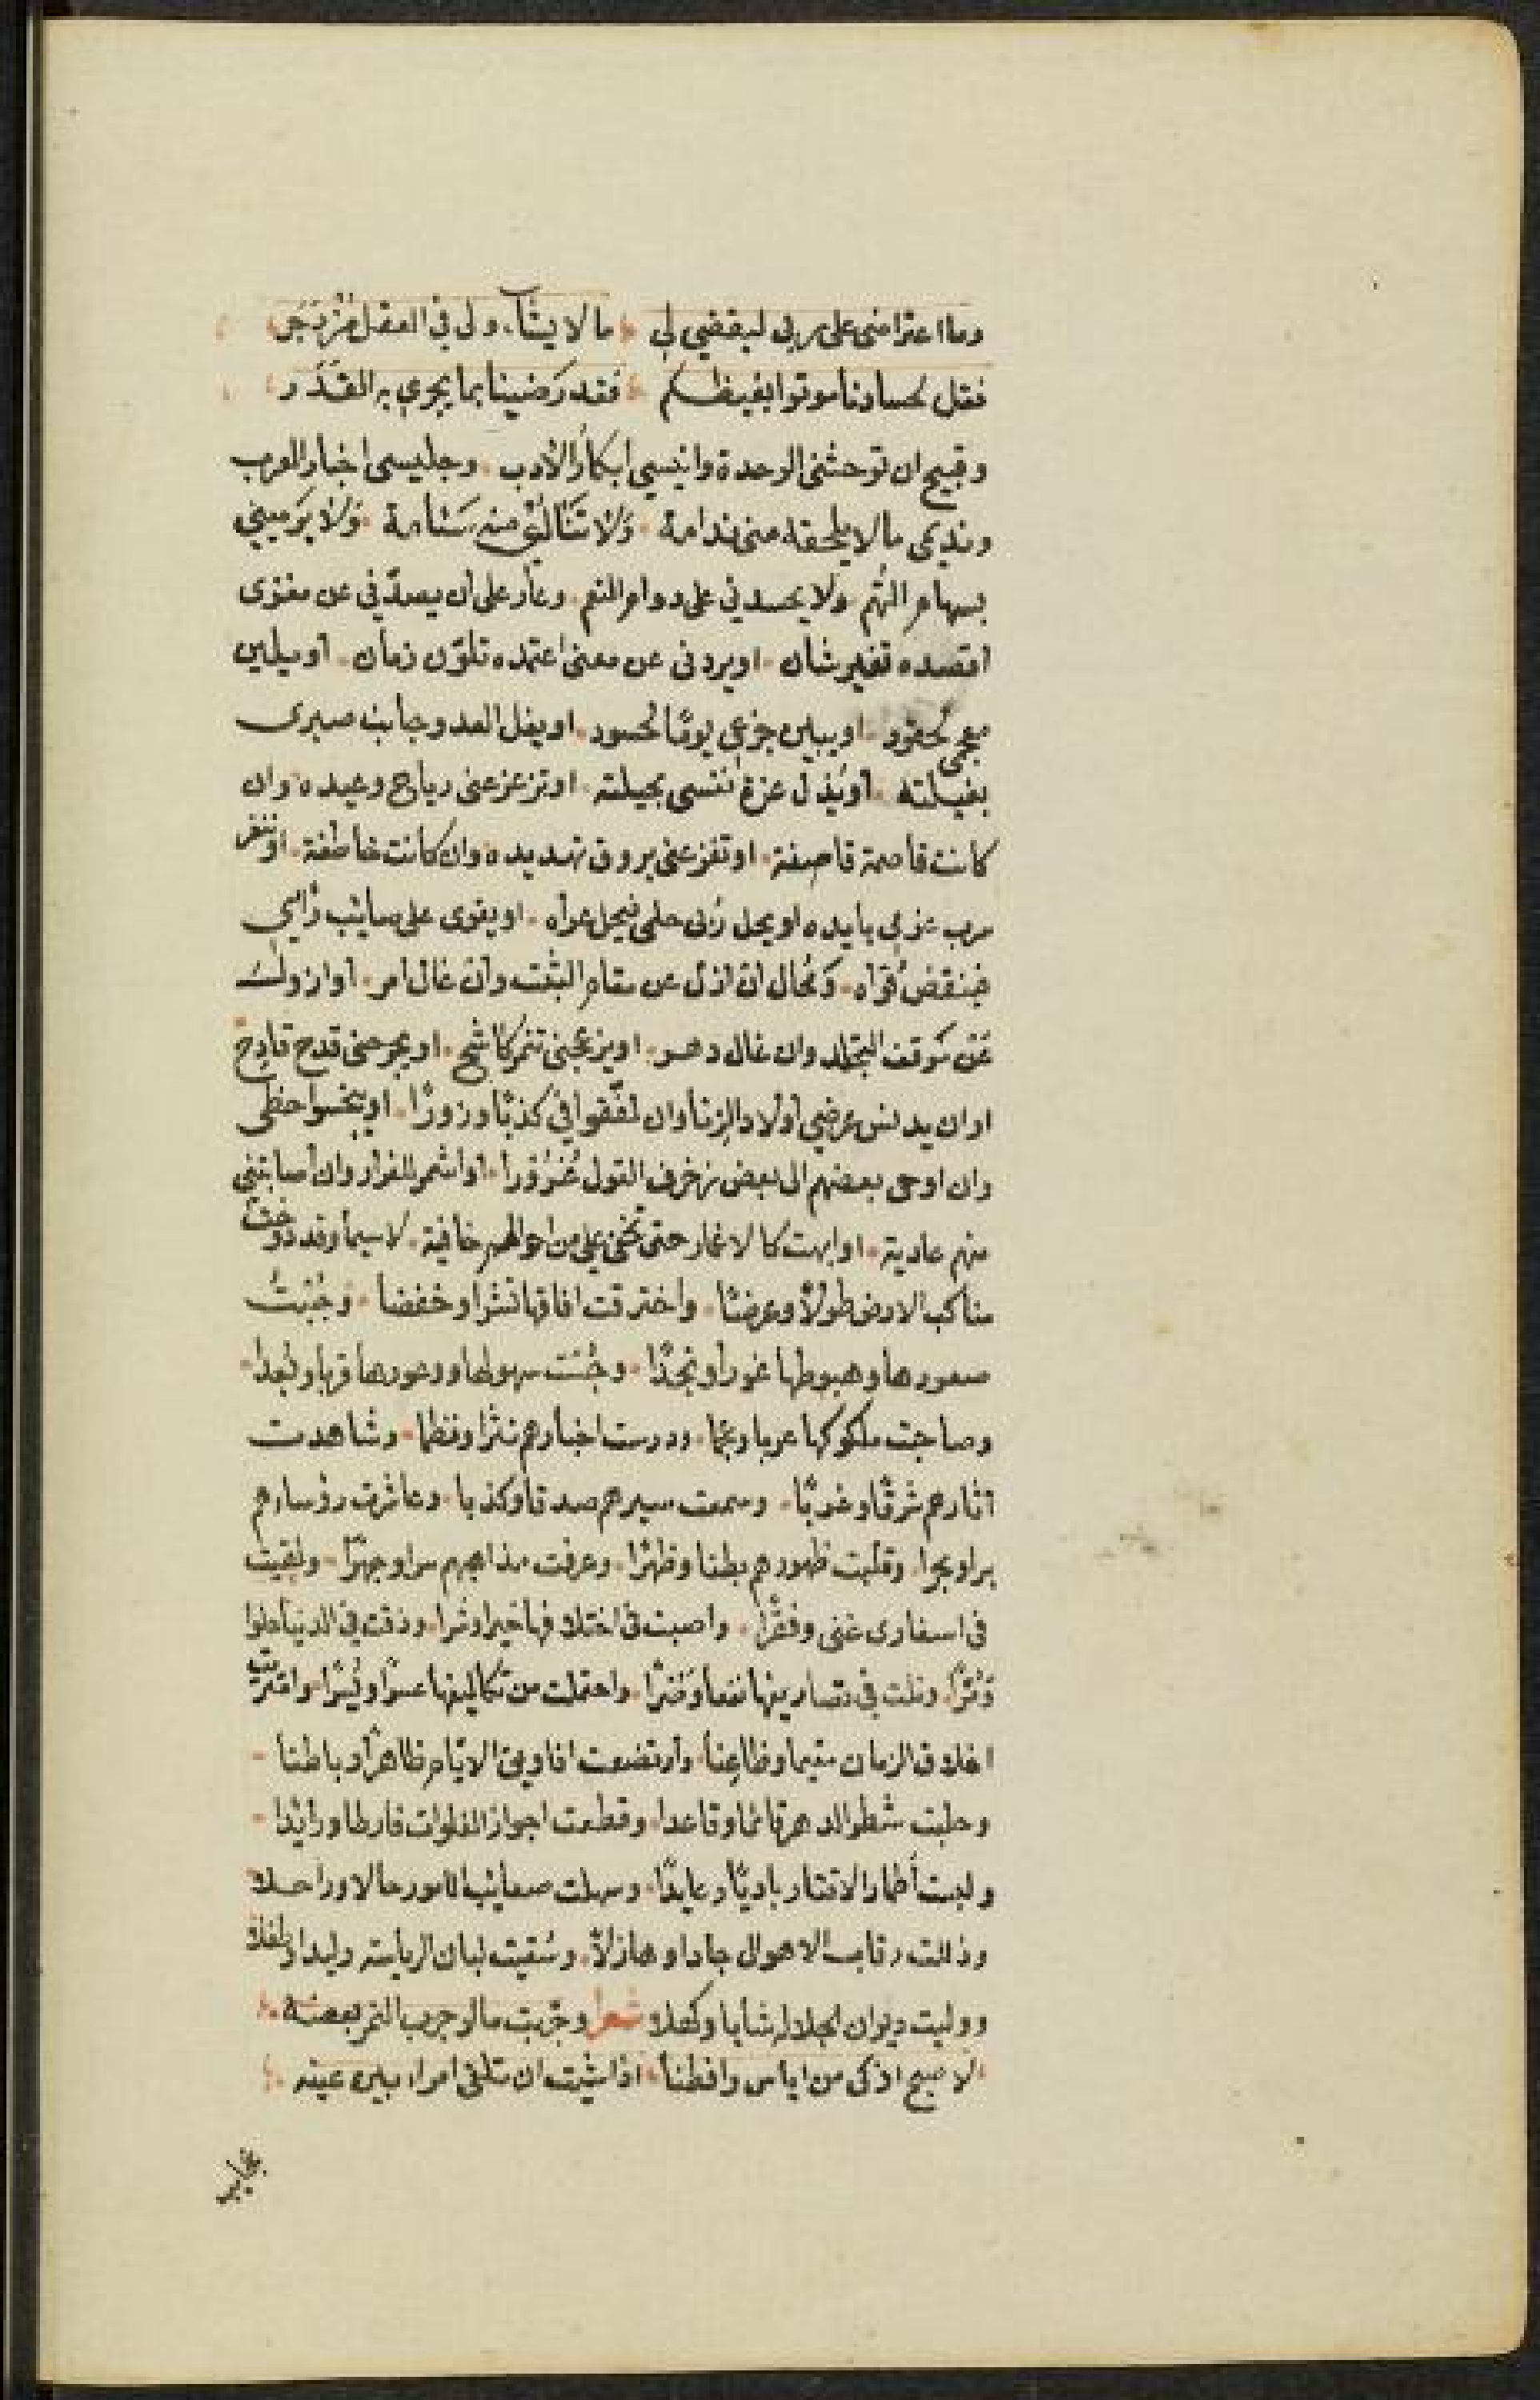 وما اعتراضى على ربى ليقضي لي ما لا يشاء ولى في العقل مزدجر
فقل لحسادنا موتوا بغيظكم فقد رَضينا بما يجري به القَدَر
وقبيح ان توحشنى الوحدة وانيسي ابكار الأدب وجليسى اخبار العرب
ونديمى ما لا يلحقه منى ندامة وَلا تَنَالُني منه سَئامة وَلا يَرميني
بسهام التهم ولا يحسدني على دوام النعم وعار على ان يصدّني عن مغزى
اقصده تغير شان او يردنى عن معنى اعتمده تلوّن زمان او يلين
عجمى لحقود او يبين جزعي يومًا لحسود او يفل العدو جانب صبرى
بغيلته او يُذل عزة نفسى بحيلته او تزعزعنى رياح وعيده وان
كانت قاصمة قاصفة او تفزعنى بروق تهديده وان كانت خاطفة او ينفر
سرب عزمي بايده او يحل رُبى حلمى فيحل عراه او يقوى على صايب رأيي
فينقض قواه وَمُحال ان ازل عن مقام التثبت وان غال امر او ازول
عَن مَوقف التجلد وان غال دهر او يزعجنى تنمر كاشح او يجرحنى قدح قادح
او ان يدنس عرضي اولاد الزنا وان لفقوا فيّ كذبًا وزورًا او يبخسوا حظى
وان اوحى بعضهم الى بعض زخرف القول غُرُورا او اشمر للفرار وان اصابتني
منهم عادية او ابهت كالاغمار حتى تخفى علي من احوالهم خافية لا سيما وقد دوخت
مناكب الارض طولاً وعرضًا واخترقت افاقها نشزا وخفضا وجُبتُ
صعودها وهبوطها غورا ونجدًا وجُست سهولها ووعورها قربا وبُعدا
وصاحبت ملوكها عربا وعجما ودرست اخبارهم نثرا ونظما وشاهدت
اثارهم شرقًا وغربًا وسمعت سيرهم صدقا وكذبا وعاشرت رؤسارهم
برا وبحرا وقلبت ظهورهم بطنا وظهرًا وعرفت مذاهبهم سرا وجهرًا ولقيت
فى اسفارى غنى وفقرًا واصبت فى اختلافها خيرا وشرا وذقت في الدنيا حلوا
وَمُرًّا ونلت في تصاريفها نفعا وَضرًّا واحتملت من تكاليفها عسرًا ويُسرًا وامتريت
اخلاف الزمان مقيما وظاعِنا وارتضعت افاويق الايام ظاهرًا وباطنا
وحلبت شطر الدهر قائما وقاعدا وقطعت اجواز الفلوات فارطا ورائدا
ولبست أطمار الاقتار باديًا وعايدًا وسهلت صعايب الامور حالا وراحلا
وذللت رقاب الاهوال جادا وهازلاً وسُقيت لبان الرياسة وليدا وطفلا
ووليت ديوان الجلالة شابا وكهلا شعر وجرّبت ما لو جرب الغمر بعضه
لاصبح اذكى من اياس وافطنا اذا شيت ان تلقى امراء بين عينه